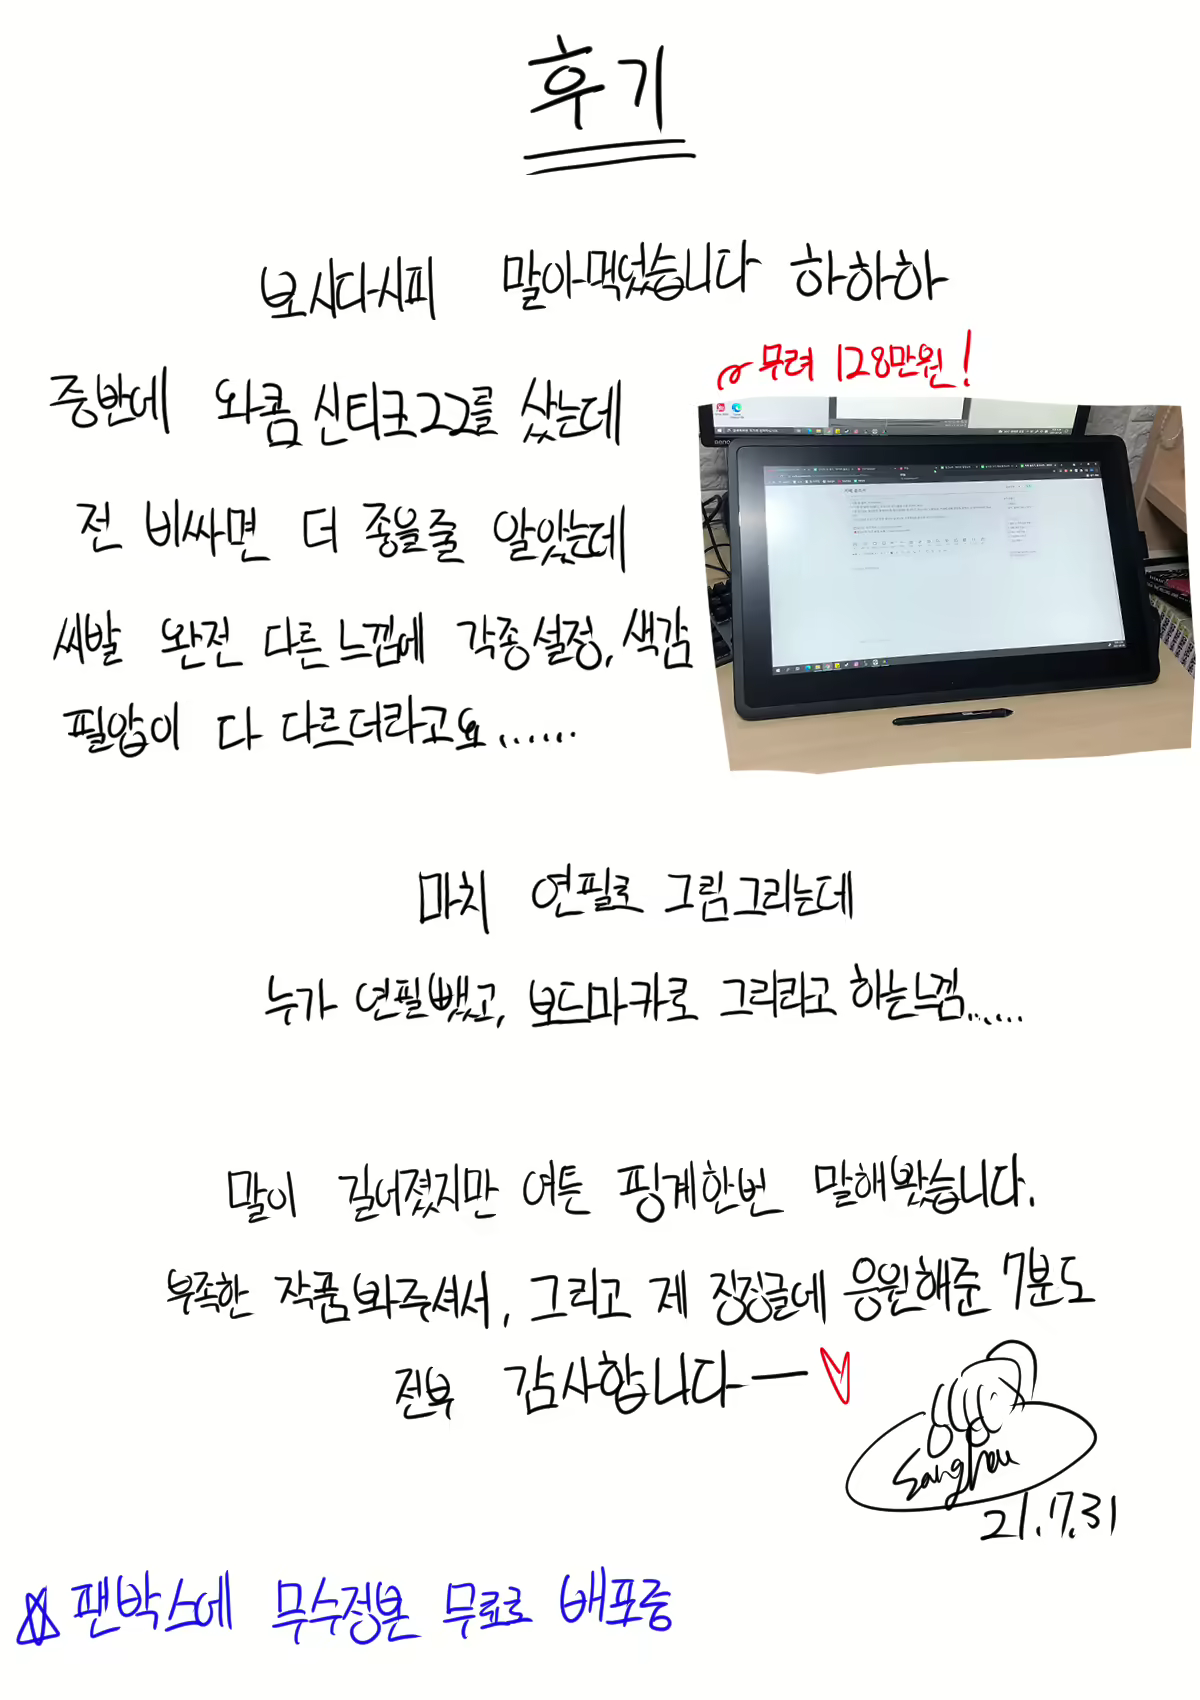 후기
보시다시피 말아먹었습니다 하하하
무려 128만원!
중반데 와콤 신티크22를 샀는데
전 비싸면 더 좋을줄 알았는데
씨발 완전 다른느낌에 각종설정, 색감
필압이 다 다르더라고요......
마치 연필로 그림그리는데
누가 연필뺐고, 보드마카로 그리라고 하는느낌......
말이 길어졌지만 여튼 핑계한번 말해봤습니다.
부족한 작품봐주셔서, 그리고 제 징징글에 응원해준 7분도
전부 감사합니다ㅡ
21.7.31
팬박스에 무수정본 무료로 배포중